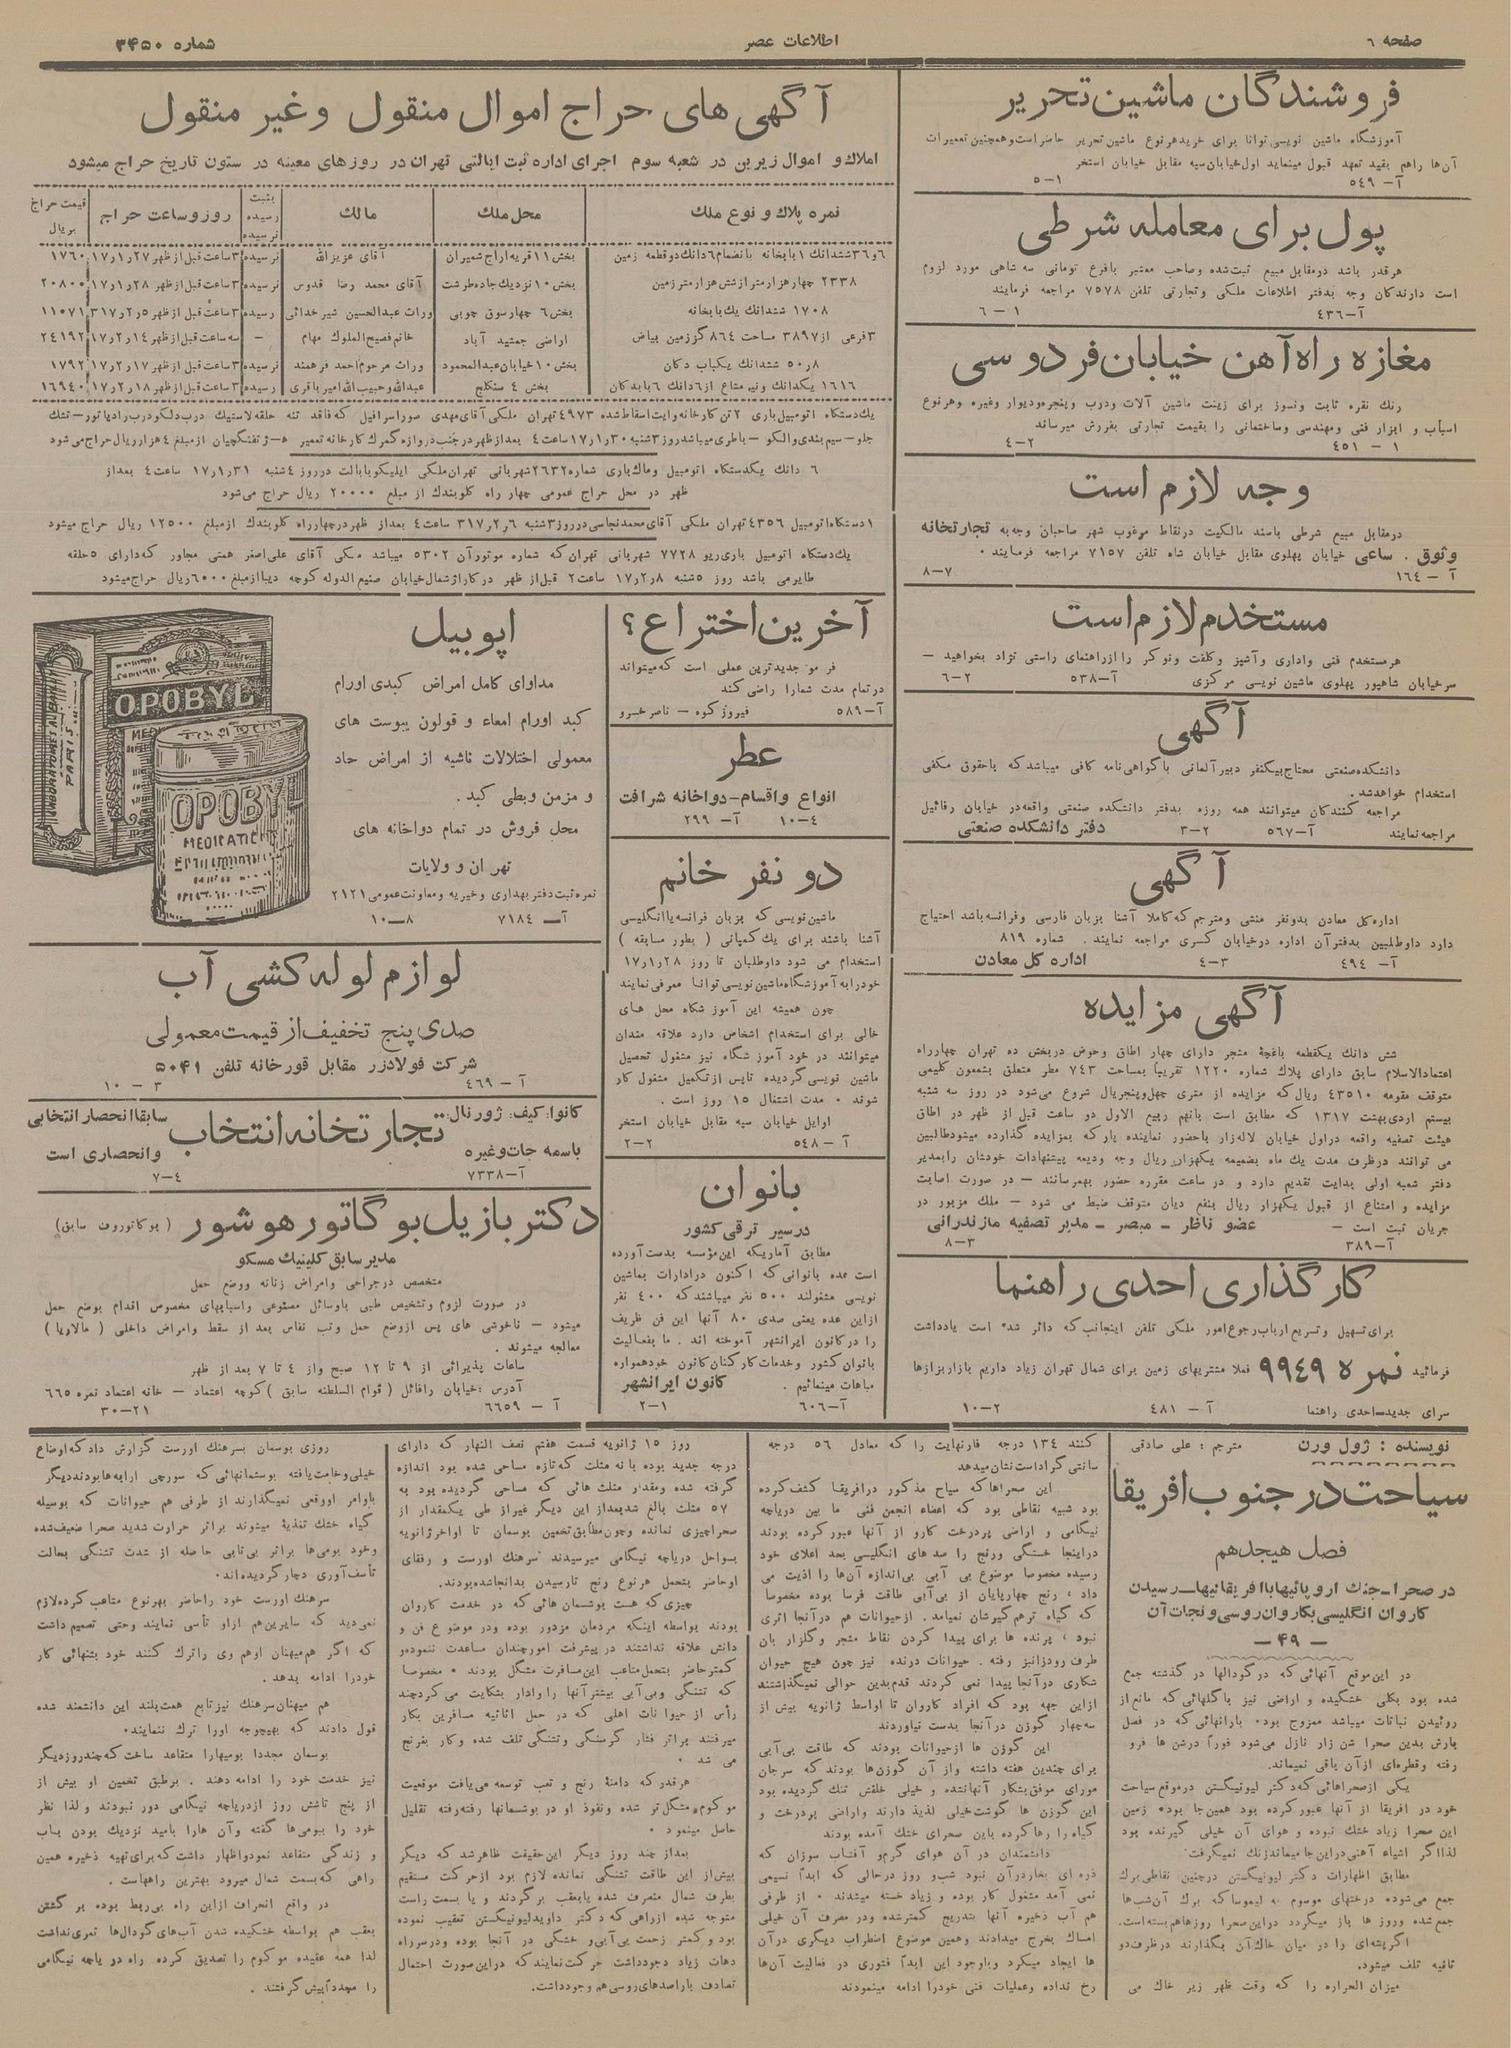 صفحه ٦
اطلاعات عصر
شماره ۳۴۵۰
فروشندگان ماشین تحریر
آموزشگاه ماشین نویسی توانا برای خرید هر نوع ماشین تحریر حاضر است و همچنین تعمیرات
آن‌ها را هم بقید تعهد قبول مینماید اول خیابان سپه مقابل خیابان استخر
آ— ٥٤٩
١—٥
پول برای معامله شرطی
هر قدر باشد در مقابل مبیع ثبت شده و صاحب معتبر با فرع تومانی سه شاهی مورد لزوم
است دارندگان وجه بدفتر اطلاعات ملکی و تجارتی تلفن ۷٥۷۸ مراجعه فرمایند
آ—٤٣٦
١ — ٦
مغازه راه آهن خیابان فردوسی
رنك نقره ثابت و نسوز برای زینت ماشین آلات و درب و پنجره و دیوار وغیره و هر نوع
اسباب و ابزار فنی و مهندسی و ساختمانی را بقیمت تجارتی بفروش میرساند
١ — ٤٥١
٢—٤
وجه لازم است
در مقابل مبیع شرطی باسند مالکیت در نقاط مرغوب شهر صاحبان وجه به تجارتخانه
وثوق . ساعی خیابان پهلوی مقابل خیابان شاه تلفن ۷١٥۷ مراجعه فرمایند .
آ — ١٦٤
۷—۸
مستخدم لازم است
هر مستخدم فنی و اداری و آشپز و کلفت و نوکر را از راهنمای راستی نژاد بخواهید —
سر خیابان شاهپور پهلوی ماشین نویسی مرکزی
آ—٥٣۸
٢—٦
آگهی
دانشکده صنعتی محتاج بیکنفر دبیر آلمانی با گواهی نامه کافی میباشد که با حقوق مکفی
استخدام خواهد شد .
مراجعه کنندگان میتوانند همه روزه بدفتر دانشکده صنعتی واقعه در خیابان رفائیل
مراجعه نمایند
آ—٥٦۷
٢—٣
دفتر دانشکده صنعتی
آگهی
اداره کل معادن بدو نفر منشی و مترجم که کاملا آشنا بزبان فارسی و فرانسه باشد احتیاج
دارد داوطلبین بدفتر آن اداره در خیابان کسری مراجعه نمایند . شماره ۸١٩
آ— ٤٩٤
٣—٤
اداره کل معادن
آگهی مزایده
شش دانك یکقطعه باغچهٔ متجر دارای چهار اطاق و حوض در بخش ده تهران چهارراه
اعتماد الاسلام سابق دارای پلاك شماره ١٢٢٠ تقریباً بمساحت ۷٤٣ مطر متعلق بشمعون کلیمی
متوقف مقومه ٤٣٥١٠ ریال که مزایده از متری چهل و پنجریال شروع می‌شود در روز سه شنبه
بیستم اردی‌بهشت ١٣١۷ که مطابق است بانهم ربیع الاول دو ساعت قبل از ظهر در اطاق
هیئت تصفیه واقعه در اول خیابان لاله‌زار با حضور نماینده پارکه بمزایده گذارده میشود طالبین
می توانند در ظرف مدت یك ماه بضمیمه یکهزار ریال وجه ودیعه پیشنهادات خودشان را بمدیر
دفتر شعبه اولی بدایت تقدیم دارد و در ساعت مقرره حضور بهمرسانند — در صورت اصابت
مزایده و امتناع از قبول یکهزار ریال بنفع دیان متوقف ضبط می شود — ملك مزبور در
جریان ثبت است —
عضو ناظر — مبصر — مدیر تصفیه مازندرانی
آ—٣۸٩
٣—۸
کارگذاری احدی راهنما
برای تسهیل و تسریع ارباب رجوع امور ملکی تلفن اینجانب که دائر شده است یادداشت
فرمائید نمره ۹۹۴۹ فعلا مشتریهای زمین برای شمال تهران زیاد داریم بازار بزازها
سرای جدید—احدی راهنما
آ — ٤۸١
٢—١٠
آگهی های حراج اموال منقول و غیر منقول
املاك و اموال زیرین در شعبه سوم اجرای اداره ثبت ایالتی تهران در روزهای معینه در ستون تاریخ حراج میشود
نمره پلاك و نوع ملك | محل ملك | مالك | بثبت رسیده نرسیده | روز و ساعت حراج | قیمت حراج بریال
٦ و ٣٦ ششدانك ١ بابخانه بانضمام ٦ دانك دو قطعه زمین | بخش ١١ قریه اراج شمیران | آقای عزیز الله | نرسیده | ٣ ساعت قبل از ظهر ١۷٫١٫٢۷ | ١۷٦٠
٢٣٣۸ چهار هزار متر از شش هزار متر زمین | بخش ١٠ نزدیك جاده طرشت | آقای محمد رضا قدوس | نرسیده | ٣ ساعت قبل از ظهر ١۷٫١٫٢۸ | ٢٠۸٠٠
١۷٠۸ ششدانك یك بابخانه | بخش ٦ چهارسوق چوبی | وراث عبدالحسین شیر خدائی | رسیده | ٣ ساعت قبل از ظهر ٣١۷٫٢٫٥ | ١١٠۷١
٣ فرعی از ٣۸٩۷ مساحت ۸٦٤ گز زمین بیاض | اراضی جمشید آباد | خانم فصیح الملوك مهام | — | سه ساعت قبل از ظهر ١۷٫٢٫١٤ | ٢٤١٩٢
۸ر٥٠ ششدانك یکباب دکان | بخش ١٠ خیابان عبدالمحمود | وراث مرحوم احمد فرهمند | نرسیده | ٣ ساعت قبل از ظهر ١۷٫٢٫١۷ | ١۷٩٢
١٦١٦ یکدانك و نیم مشاع از ٦ دانك ٦ باب دکان | بخش ٤ سنگلج | عبدالله و حبیب الله امیر باقری | رسیده | ٣ ساعت قبل از ظهر ١۷٫٢٫١۸ | ١٦٩٤٠
یك دستگاه اتومبیل باری ٢ تن کارخانه وایت اسقاط شده ٤٩۷٣ تهران ملکی آقای مهدی سوراسرافیل که فاقد تنه حلقه لاستیك درب دلکو درب رادیاتور — تشك
جلو — سیم بندی و الکو — باطری میباشد روز ٣ شنبه ١۷٫١٫٣٠ ساعت ٤ بعد از ظهر در جنب دروازه گمرك کارخانه تعمیر هـ—ز تفنگچیان از مبلغ ٤ هزار ریال حراج می شود
٦ دانك یکدستگاه اتومبیل وماك باری شماره ٢٦٣٢ شهربانی تهران ملکی ایلیکو باباله در روز ٤ شنبه ١۷٫١٫٣١ ساعت ٤ بعد از
ظهر در محل حراج عمومی چهار راه کلوبندك از مبلغ ٢٠٠٠٠ ریال حراج می شود
١ دستگاه اتومبیل ٤٣٥٦ تهران ملکی آقای محمد نجاسی در روز ٣ شنبه ٣١۷٫٢٫٦ ساعت ٤ بعد از ظهر در چهار راه کلوبندك از مبلغ ١٢٥٠٠ ریال حراج میشود
یك دستگاه اتومبیل باری ریو ۷۷٢۸ شهربانی تهران که شماره موتور آن ٥٣٠٢ میباشد ملکی آقای علی اصغر همتی مجاور که دارای ٥ حلقه
طایر می باشد روز ٥ شنبه ١۷٫٢٫۸ ساعت ٢ قبل از ظهر در کاراژ شمال خیابان صنیع الدوله کوچه دیبا از مبلغ ٦٠٠٠ ریال حراج میشود
آخرین اختراع ؟
فر مو جدیدترین عملی است که میتواند
در تمام مدت شمارا راضی کند
آ—٥۸٩
فیروز کوه — ناصر خسرو
عطر
انواع و اقسام — دواخانه شرافت
٤—١٠
آ— ٢٩٩
دو نفر خانم
ماشین نویسی که بزبان فرانسه یا انگلیسی
آشنا باشند برای یك کمپانی ( بطور مسابقه )
استخدام می شود داوطلبان تا روز ١۷٫١٫٢۸
خود را به آموزشگاه ماشین نویسی توانا معرفی نمایند
چون همیشه این آموزشگاه محل های
خالی برای استخدام اشخاص دارد علاقه مندان
میتوانند در خود آموزشگاه نیز مشغول تحصیل
ماشین نویسی گردیده تا پس از تکمیل مشغول کار
شوند . مدت اشتغال ١٥ روز است .
اوایل خیابان سپه مقابل خیابان استخر
آ — ٥٤۸
٢—٢
بانوان
در سیر ترقی کشور
مطابق آماریکه این مؤسسه بدست آورده
است عده بانوانی که اکنون در ادارات بماشین
نویسی مشغولند ٥٠٠ نفر میباشند که ٤٠٠ نفر
از این عده یعنی صدی ۸٠ آنها این فن ظریف
را در کانون ایرانشهر آموخته اند . ما بفعالیت
بانوان کشور و خدمات کارکنان کانون خود همواره
مباهات مینمائیم .
کانون ایرانشهر
آ—٦٠٦
١—٢
اپوبیل
مداوای کامل امراض کبدی اورام
کبد اورام امعاء و قولون یبوست های
معمولی اختلالات ناشیه از امراض حاد
و مزمن وبطی کبد .
محل فروش در تمام دواخانه های
تهران و ولایات
نمره ثبت دفتر بهداری و خیریه و معاونت عمومی ٢١٢١
آ— ۷١۸٤
۸—١٠
OPOBYL
OPOBY
MEDICATIC
PARIS
لوازم لوله کشی آب
صدی پنج تخفیف از قیمت معمولی
شرکت فولادزر مقابل قورخانه تلفن ۵۰۴۱
آ — ٤٦٩
٣ — ١٠
کانوا: کیف: ژورنال:
باسمه جات وغیره
تجارتخانه انتخاب
سابقا انحصار انتخابی
و انحصاری است
آ—۷٣٣۸
٤—۷
دکتر بازیل بوگاتور هوشور ( بوکاتوروف سابق )
مدیر سابق کلینیك مسکو
متخصص در جراحی و امراض زنانه و وضع حمل
در صورت لزوم و تشخیص طبی با وسائل مصنوعی و اسبابهای مخصوص اقدام بوضع حمل
میشود — ناخوشی های پس از وضع حمل و تب نفاس بعد از سقط و امراض داخلی ( مالاریا )
معالجه میشوند .
ساعات پذیرائی از ٩ تا ١٢ صبح و از ٤ تا ۷ بعد از ظهر
آدرس : خیابان رافائل ( قوام السلطنه سابق ) کوچه اعتماد — خانه اعتماد نمره ٦٦٥
آ — ٦٦٥٩
٢١—٣٠
نویسنده : ژول ورن
مترجم : علی صادقی
سیاحت در جنوب افریقا
فصل هیجدهم
در صحرا — جنك اروپائیها با افریقائیها — رسیدن
کاروان انگلیسی بکاروان روسی و نجات آن
— ۴۹ —
در این موقع آنهائی که در گودالها در گذشته جمع
شده بود بکلی خشکیده و اراضی نیز با گلهائی که مانع از
روئیدن نباتات میباشد ممزوج بود . بارانهائی که در فصل
بارش بدین صحرا شن زار نازل می‌شود فوراً در شن ها فرو
رفته و قطره‌ای از آن باقی نمیماند.
یکی از صحراهائی که دکتر لیونیگستن در موقع سیاحت
خود در افریقا از آنها عبور کرده بود همین جا بود . زمین
این صحرا زیاد خشك نبوده و هوای آن خیلی گیرنده بود
لذا اگر اشیاء آهنی در این جا میماند زنك نمیگرفت .
مطابق اظهارات دکتر لیونیگستن در چنین نقاطی برك
جمع می‌شود . درختهای موسوم به لیموسا که برك آن شب‌ها
جمع شده و روز ها باز میگردد در این صحرا روزها هم بسته است.
اگر پشه‌ای را در میان خاك آن بگذارند در ظرف دو
ثانیه تلف میشود.
میزان الحراره را که وقت ظهر زیر خاك می
کنند ١٣٤ درجه فارنهایت را که معادل ٥٦ درجه
سانتی گراد است نشان میدهد
این صحراها که سیاح مذکور در افریقا کشف کرده
بود شبیه نقاطی بود که اعضاء انجمن فنی ما بین دریاچه
نیگامی و اراضی پردرخت کارو از آنها عبور کرده بودند
در اینجا خستگی و رنج را صد های انگلیسی بحد اعلای خود
رسیده مخصوصا موضوع بی آبی بی‌اندازه آن‌ها را اذیت می
داد ، رنج چهارپایان از بی‌آبی طاقت فرسا بوده مخصوصا
که گیاه تر هم گیرشان نمیامد . از حیوانات هم در آنجا اثری
نبود ، پرنده ها برای پیدا کردن نقاط متجر و گلزار بان
طرف رود زانبز رفته . حیوانات درنده نیز چون هیچ حیوان
شکاری در آنجا پیدا نمی کردند قدم بدین حوالی نمیگذاشتند
از این جهه بود که افراد کاروان تا اواسط ژانویه بیش از
سه چهار گوزن در آنجا بدست نیاوردند
این گوزن ها از حیوانات بودند که طاقت بی‌آبی
برای چندین هفته داشته و از آن گوزن‌ها بودند که سرجان
مورای موفق بشکار آنها نشده و خیلی خلقش تنك گردیده بود
این گوزن ها گوشت خیلی لذیذ دارند و اراضی پردرخت و
گیاه را رها کرده باین صحرای خشك آمده بودند
دانشمندان در آن هوای گرم و آفتاب سوزان که
ذره ای بخار در آن نبود شب و روز در حالی که ابداً نسیمی
نمی آمد مشغول کار بوده و زیاد خسته میشدند . از طرفی
هم آب ذخیره آنها بتدریج کمتر شده و در مصرف آن خیلی
امساك بخرج میدادند و همین موضوع اضطراب دیگری در آن
ها ایجاد میکرد و با وجود این ابداً فتوری در فعالیت آن‌ها
رخ نداده و عملیات فنی خود را ادامه مینمودند
روز ١٥ ژانویه قسمت هفتم نصف النهار که دارای
درجه جدید بوده با نه مثلث که تازه مساحی شده بود اندازه
گرفته شده و مقدار مثلث هائی که مساحی گردیده بود به
٥۷ مثلث بالغ شد بعد از این دیگر غیر از طی یکمقدار از
صحرا چیزی نمانده و چون مطابق تخمین بوسمان تا اواخر ژانویه
بسواحل دریاچه نیگامی میرسیدند سرهنك اورست و رفقای
او حاضر بتحمل هر نوع رنج تا رسیدن بدانجا شده بودند.
چیزی که هست بوشمان هائی که در خدمت کاروان
بودند بواسطه اینکه مردمان مزدور بوده و در موضوع فن و
دانش علاقه نداشتند در پیشرفت امور چندان مساعدت ننموده و
کمتر حاضر بتحمل متاعب این مسافرت مشکل بودند . مخصوصا
که تشنگی و بی آبی بیشتر آنها را وادار بشکایت می کرد چند
رأس از حیوانات اهلی که در حمل اثاثیه مسافرین بکار
میرفتند براثر فشار گرسنگی و تشنگی تلف شده و کار بغرنج
می شد .
هر قدر که دامنهٔ رنج و تعب توسعه می‌یافت موقعیت
موکوم مشگل تر شده و نفوذ او در بوشمانها رفته رفته تقلیل
حاصل مینمود .
بعد از چند روز دیگر این حقیقت ظاهر شد که دیگر
بیش از این طاقت تشنگی نمانده لازم بود از حرکت مستقیم
بطرف شمال منصرف شده یا بعقب برگردند و یا بسمت راست
متوجه شده از راهی که دکتر داوید لیونیگستن تعقیب نموده
بود و کمتر زحمت بی‌آبی و خشکی در آنجا بوده و در سر راه
دهات زیاد وجود داشت حرکت نمایند که در این صورت احتمال
تصادف با راصدهای روسی هم وجود داشت.
روزی بوسمان بسرهنك اورست گزارش داد که اوضاع
خیلی وخامت یافته بوستمانهائی که سورچی ارابه‌ها بودند دیگر
باوامر او وقعی نمیگذارند از طرفی هم حیوانات که بوسیله
گیاه خشك تغذیهٔ میشوند براثر حرارت شدید صحرا ضعیف شده
و خود بومی‌ها براثر بی‌تابی حاصله از شدت تشنگی بحالت
تأسف آوری دچار گردیده‌اند.
سرهنك اورست خود را حاضر بهر نوع متاعب کرده لازم
نمی‌دید که سایرین هم از او تأسی نمایند وحتی تصمیم داشت
که اگر هم میهنان او هم وی را ترك کنند خود بتنهائی کار
خود را ادامه بدهد .
هم میهنان سرهنك نیز تابع همت بلند این دانشمند شده
قول دادند که بهیچوجه او را ترك ننمایند.
بوسمان مجدداً بومیها را متقاعد ساخت که چند روز دیگر
نیز خدمت خود را ادامه دهند . بر طبق تخمین او بیش از
از پنج تا شش روز از دریاچه نیگامی دور نبودند و لذا نظر
خود را ببومی‌ها گفته و آن ها را بامید نزدیك بودن باب
و زندگی متقاعد نمود و اظهار داشت که برای تهیه ذخیره همین
راهی که بسمت شمال میرود بهترین راههاست .
در واقع انحراف از این راه بی‌ربط بوده برگشتن
بعقب هم بواسطه خشکیده شدن آب‌های گودال‌ها ثمری نداشت
لذا همه عقیده موکوم را تصدیق کرده راه دریاچه نیگامی
را مجدداً پیش گرفتند .